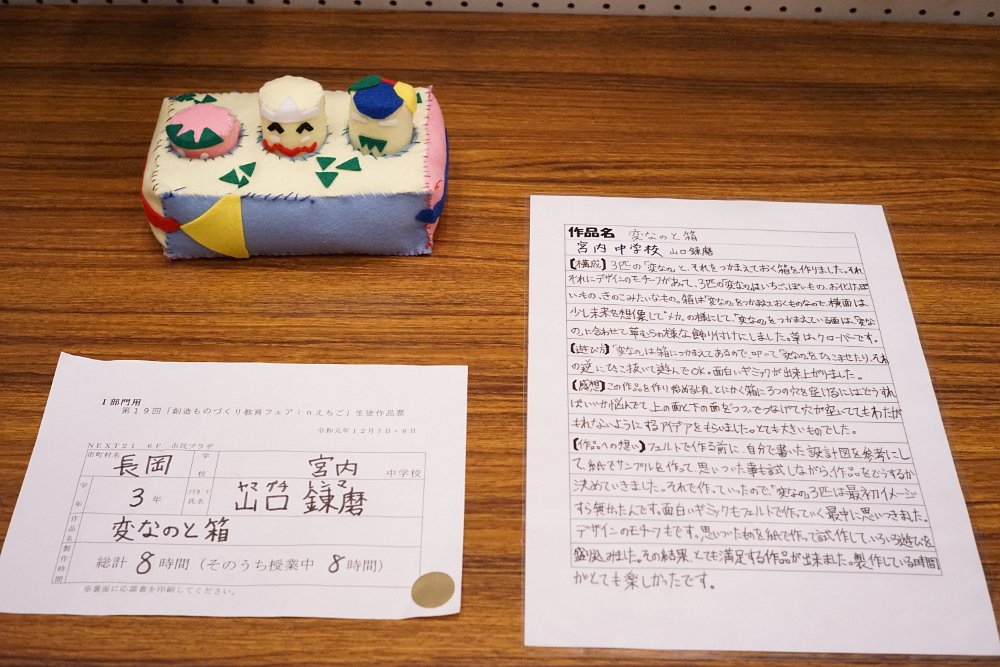 Ⅰ部門用
第19回「創造ものづくり教育フェアinえちご」生徒作品票
令和元年12月7日・8日
NEXT21 6F 市民プラザ
市町村名 長岡 学校 宮内 中学校
学年 3年 フリガナ 氏名 ヤマグチ レンマ 山口 錬磨
作品名 変なのと箱
製作時間 総計 8時間（そのうち授業中 8時間）
※裏面に応諾書を印刷してください。
作品名 変なのと箱
宮内中学校 山口錬磨
【構成】3匹の「変なの」と、それをつかまえておく箱を作りました。それ
ぞれにデザインのモチーフがあって、3匹の「変なの」はいちごっぽいもの、お化けっぽ
いもの、きのこみたいなもの。箱は「変なの」をつかまえておくものなので、横面は
少し未来を想像して"メカ"の様にして、「変なの」をつかまえている面は、「変な
の」に合わせて草むらの様な飾り付けにしました。草はクローバーです。
【遊び方】「変なの」は箱につかまえてあるので、叩いて「変なの」をひっこませたり、その
逆にひっこ抜いて遊んでOK。面白いギミックが出来上がりました。
【感想】この作品を作り始める頃、とにかく箱に3つの穴を空けるにはどうすれ
ばいいか悩んでて、上の面と下の面をつつでつなげて穴が空いててもわたが
もれないようにするアイデアをもらいました。とても大きいものでした。
【作品への想い】フェルトで作る前に、自分で書いた設計図を参考にし
て、紙でサンプルを作って、思いついた事も試しながら、作品をどうするか
決めていきました。それで作っていったので、「変なの」3匹は最初イメージ
すら無かったんです。面白いギミックもフェルトで作っていく最中に思いつきました。
デザインのモチーフもです。思いついたものを紙で作って試作していろいろな遊びを
盛り込みました。その結果、とても満足する作品が出来ました。製作している時間
がとても楽しかったです。